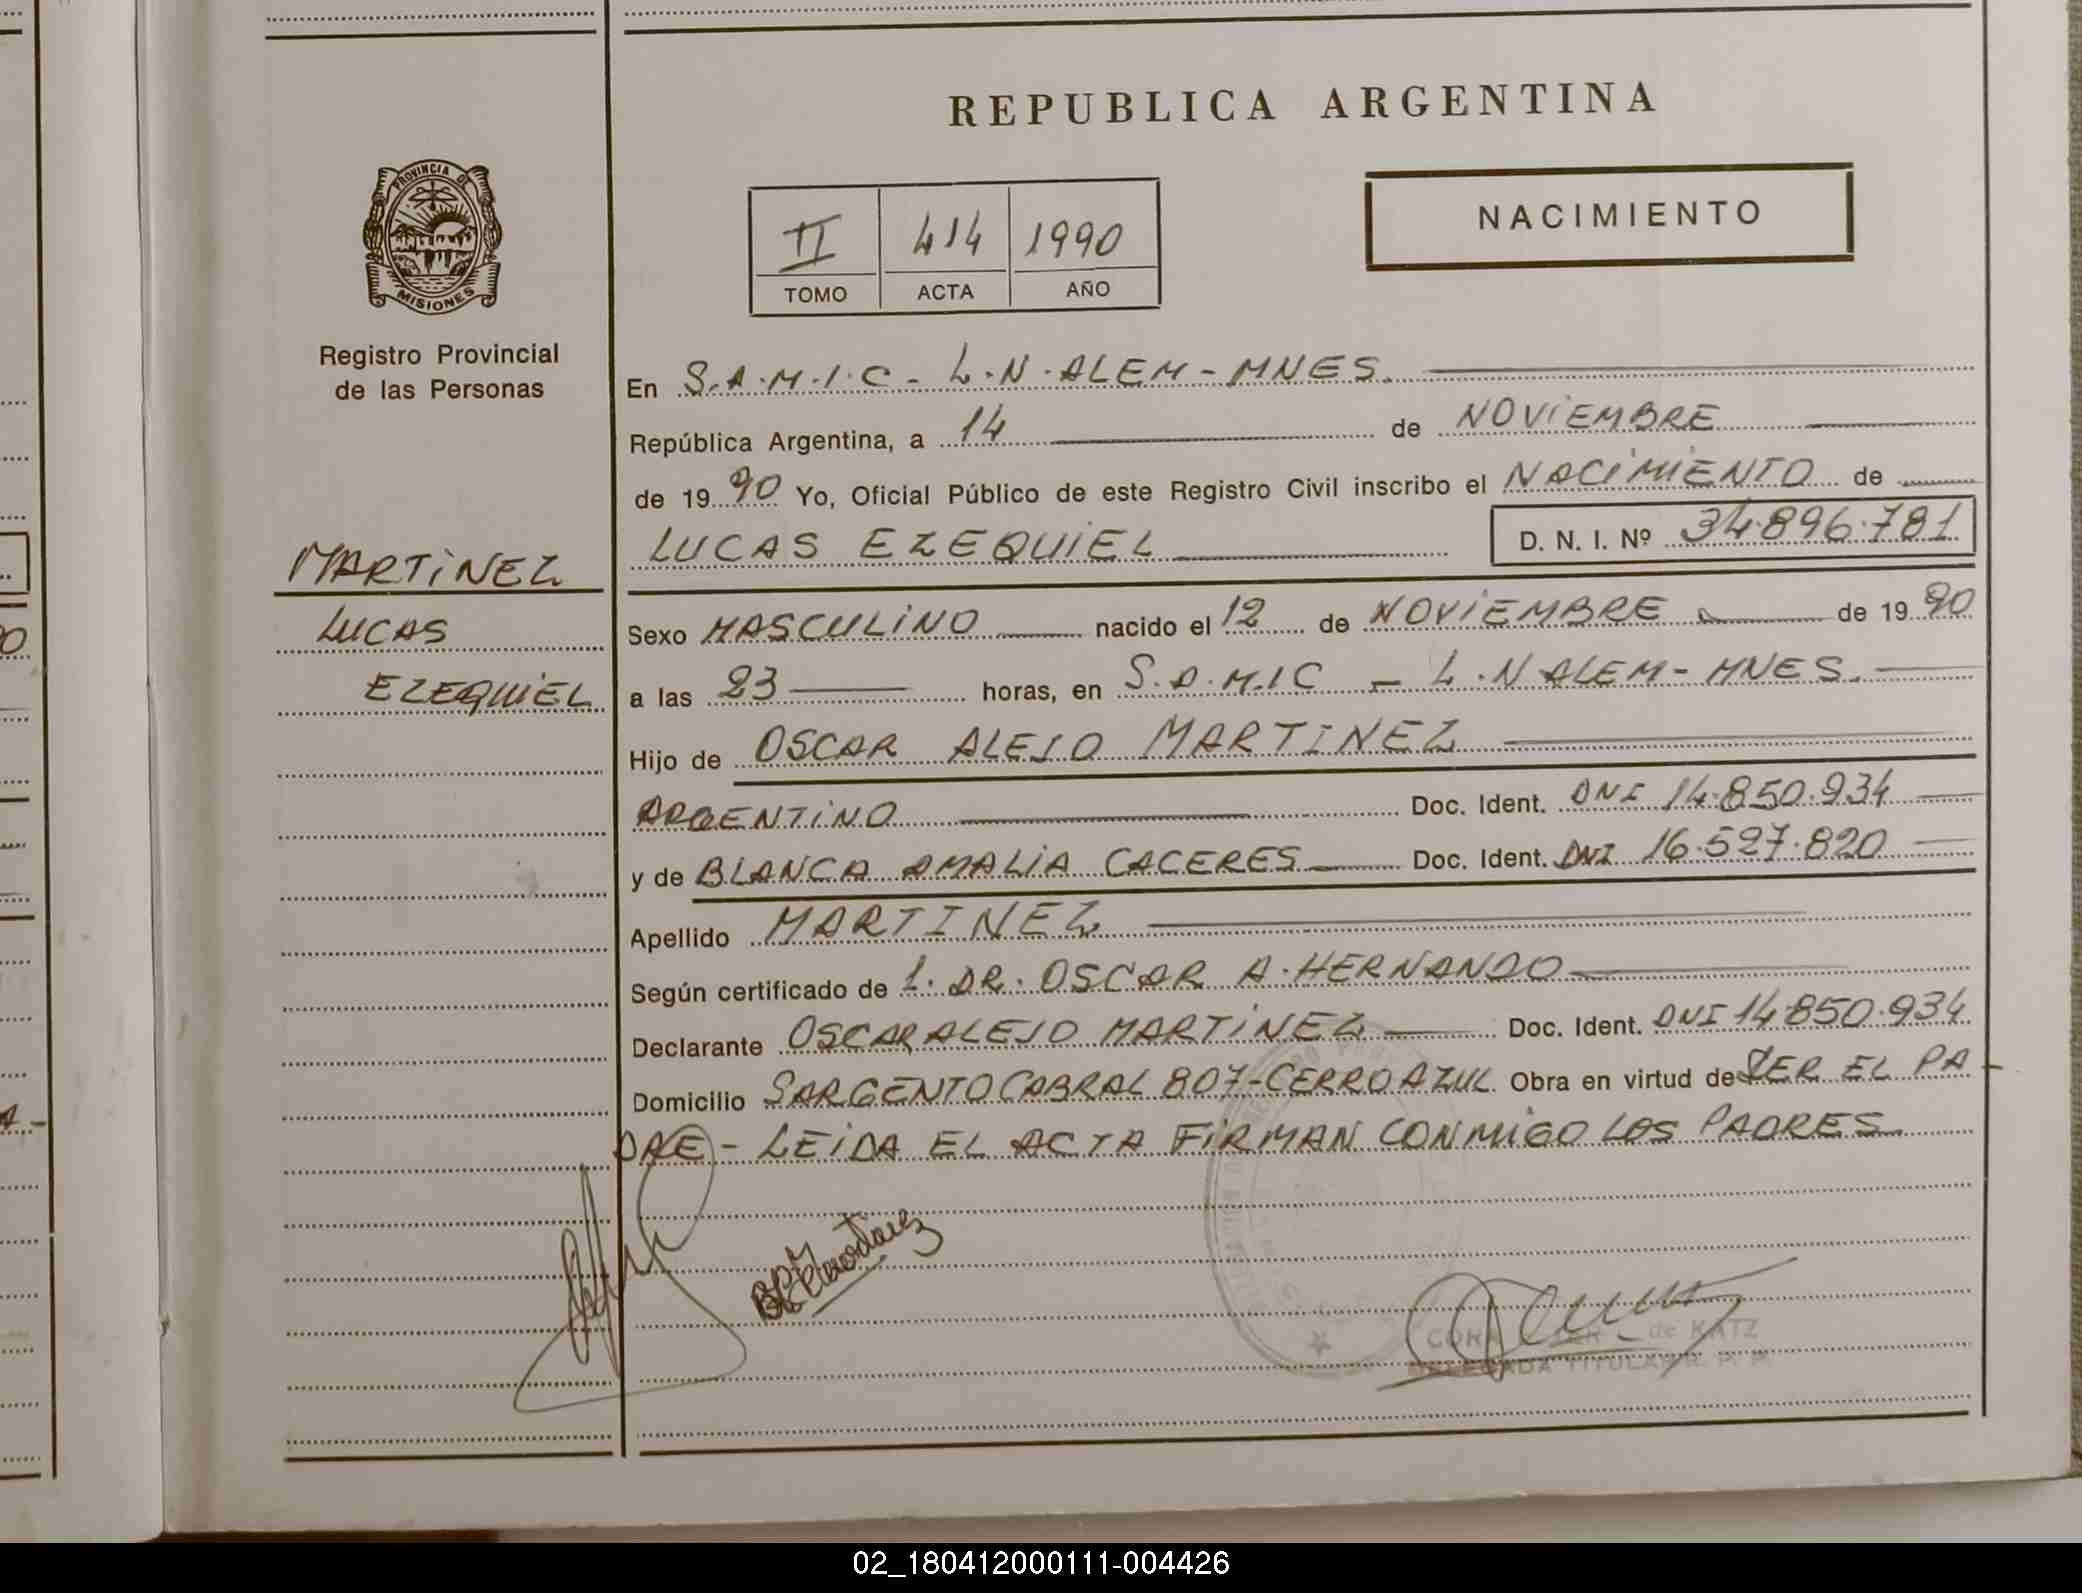 REPUBLICA ARGENTINA
PROVINCIA DE
MISIONES
Registro Provincial
de las Personas
II 414 1990
TOMO ACTA AÑO
NACIMIENTO
En S.A.M.I.C - L.N. ALEM - MNES.
República Argentina, a 14 de NOVIEMBRE
de 1990 Yo, Oficial Público de este Registro Civil inscribo el NACIMIENTO de
LUCAS EZEQUIEL D. N. I. Nº 34.896.781
MARTINEZ
LUCAS
EZEQUIEL
Sexo MASCULINO nacido el 12 de NOVIEMBRE de 1990
a las 23 horas, en S.A.M.I.C - L.N ALEM - MNES.
Hijo de OSCAR ALEJO MARTINEZ
ARGENTINO Doc. Ident. DNI 14.850.934
y de BLANCA AMALIA CACERES Doc. Ident. DNI 16.527.820
Apellido MARTINEZ
Según certificado de 1. DR. OSCAR A. HERNANDO
Declarante OSCAR ALEJO MARTINEZ Doc. Ident. DNI 14.850.934
Domicilio SARGENTO CABRAL 807 - CERRO AZUL Obra en virtud de SER EL PA-
DRE - LEIDA EL ACTA FIRMAN CONMIGO LOS PADRES
de KATZ
DELEGADA TITULAR R. P. P.
02_180412000111-004426